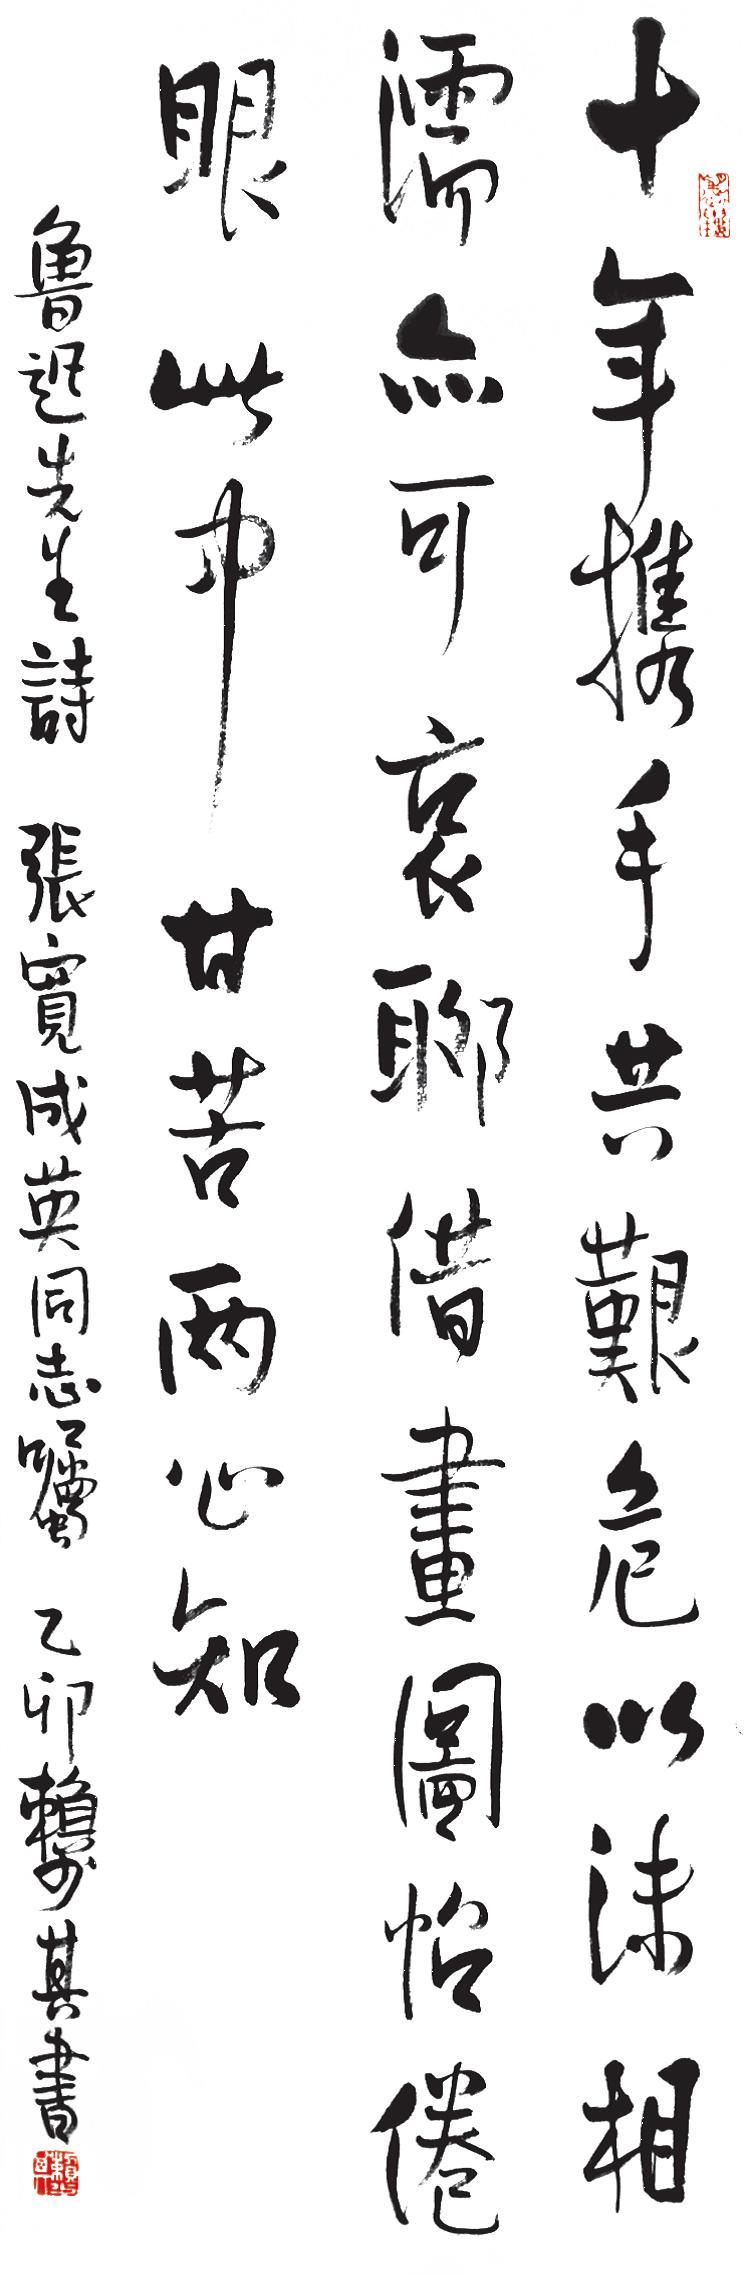 十年携手共艱危以沫相
濡亦可哀聊借畫圖怡倦
眼此中甘苦两心知
魯迅先生詩 張寬成英同志囑 乙卯賴少其書